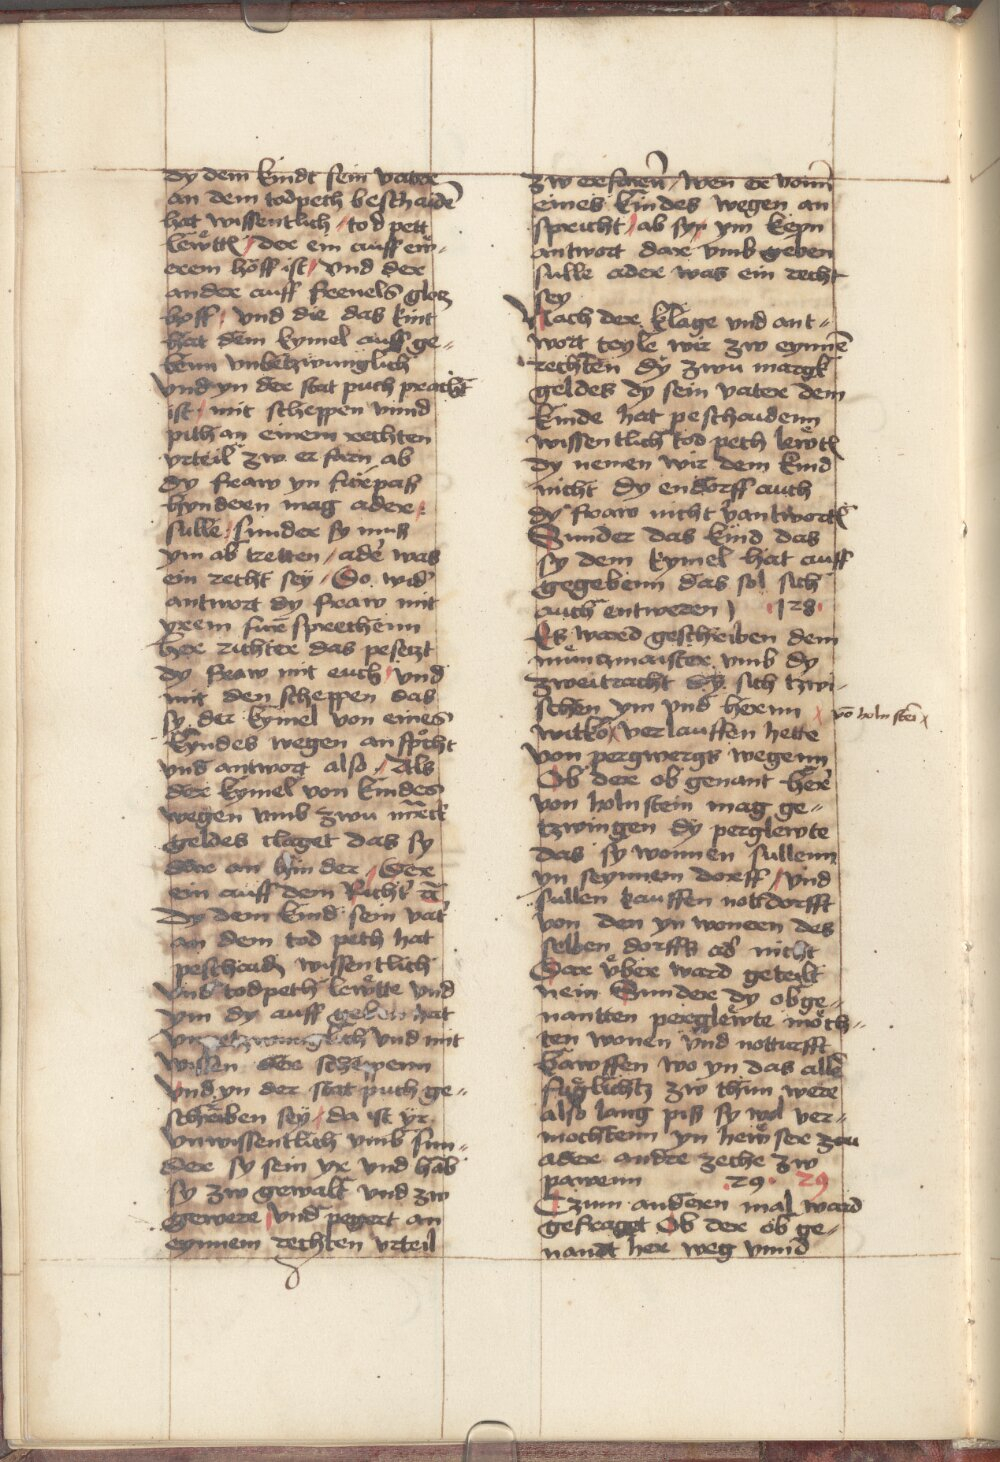 dy dem kindt sein vater
an dem todpeth beschaidē
hat wissentlich / tod pett
lewttꝭ / der ein auff ew-
erem hoff ist / vnd der
ander auff freuels glocz
hoff / vnd die das kint
hat dem kymel auff ge-
benn vnbetzwunglich
vnd yn der stat puch pracht
ist / mit scheppen vnnd
pith an einem rechten
vrteil zw er farn ab
dy fraw yn fürpas
hynderen mag ader /
sulle / sunder sy mus
ym ab tretten / adē was
ein recht sey / Do wid
antwort dy fraw mit
yrem fürsprechenn
her richter das pesetzt
dy fraw mit euch / vnd
mit den scheppen das
sy der kymel von eines
kyndes wegen an spicht
vnd antwort also / Als
der kymel von kindes
wegen vmb zwu marck
geldes claget das sy
der an hinder / Der
ein auff dem
dy dem kind sein vat
an dem tod peth hat
peschaidn wissentlich
vnd todpeth lewtte vnd
ym dy auff geben hat
vnbetzwunglich vnd mit
wissen der scheppenn
vnd yn der stat puch ge-
schriben sey / da ist yr
vnwissentlich vmb sun-
der sy sein yr vnd hab
sy zw gewalt vnd zw
gewere / vnd pegert an
eynnem rechten vrteil
zw erfaren / wen er vonn
eines kindes wegen an
spricht / ab sy ym keyn
antwort dar vmb geben
sulle ader was ein recht
sey
Nach der klage vnd ant-
wort teyle wir zw eynnē
rechten dy zwu margk
geldes dy sein vater dem
kinde hat peschaidenn
wissentlich tod peth lewtꝭ
dy nemen wir dem kind
nicht dy endorff auch
dy fraw nicht vantwortꝭ
Sunder das kind das
sy dem kymel hat auff
gegebenn das sol sich
auch entweren 128
Es ward geschriben dem
müntzmaister vmb dy
zweitracht dy sich tzwi-
schen ym vnd herenn
witko / verlauffen hette
vō holnstein
von pergwergs wegenn
Ob der ob genant herr
von holnstein mag ge-
tzwingen dy perglewte
das sy wonnen sullenn
yn seynnem dorff / vnd
sullen kauffen notdorfft
von den yn wonern des
selben dorffs ad nicht
Dar vber ward geteilt
nein Sunder dy obge-
nantten perglewte moch-
ten wonen vnd notturfft
kawffen wo yn das aller
fuglichtz zw thun were
also lang piß sy wol ver-
mochtenn yn hewser zw
ader andre zeche zw
pawenn 29 29
Czum anderen mal ward
gefraget Ob der ob ge-
nandt her weg vnnd